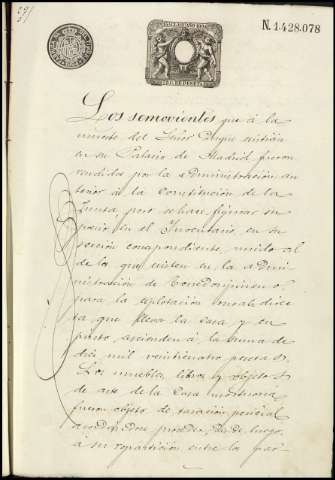 N. 1.428.078
Los semovientes que á la
muerte del Señor Duque existian
en su Palacio de Madrid fueron
vendidos por la administracion an
terior á la constitucion de la
Junta pero se hace figurar su
precio en el Inventario, en su
seccion correspondiente, unido al
de los que existen en la admi
nistracion de
para la esplotacion directa
ta que lleva la casa y en
junto ascienden á la suma de
diez mil veinticuatro pesetas.
Los muebles, libros y objetos
de arte de la Casa mortuoria
fueron objeto de tasacion pericial
desde luego,
á su reparticion entre los par